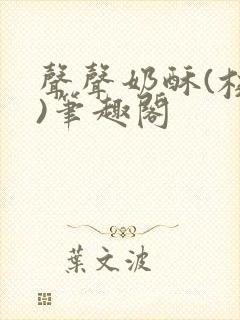 聲聲奶酥(校
)筆趣閣
葉文波